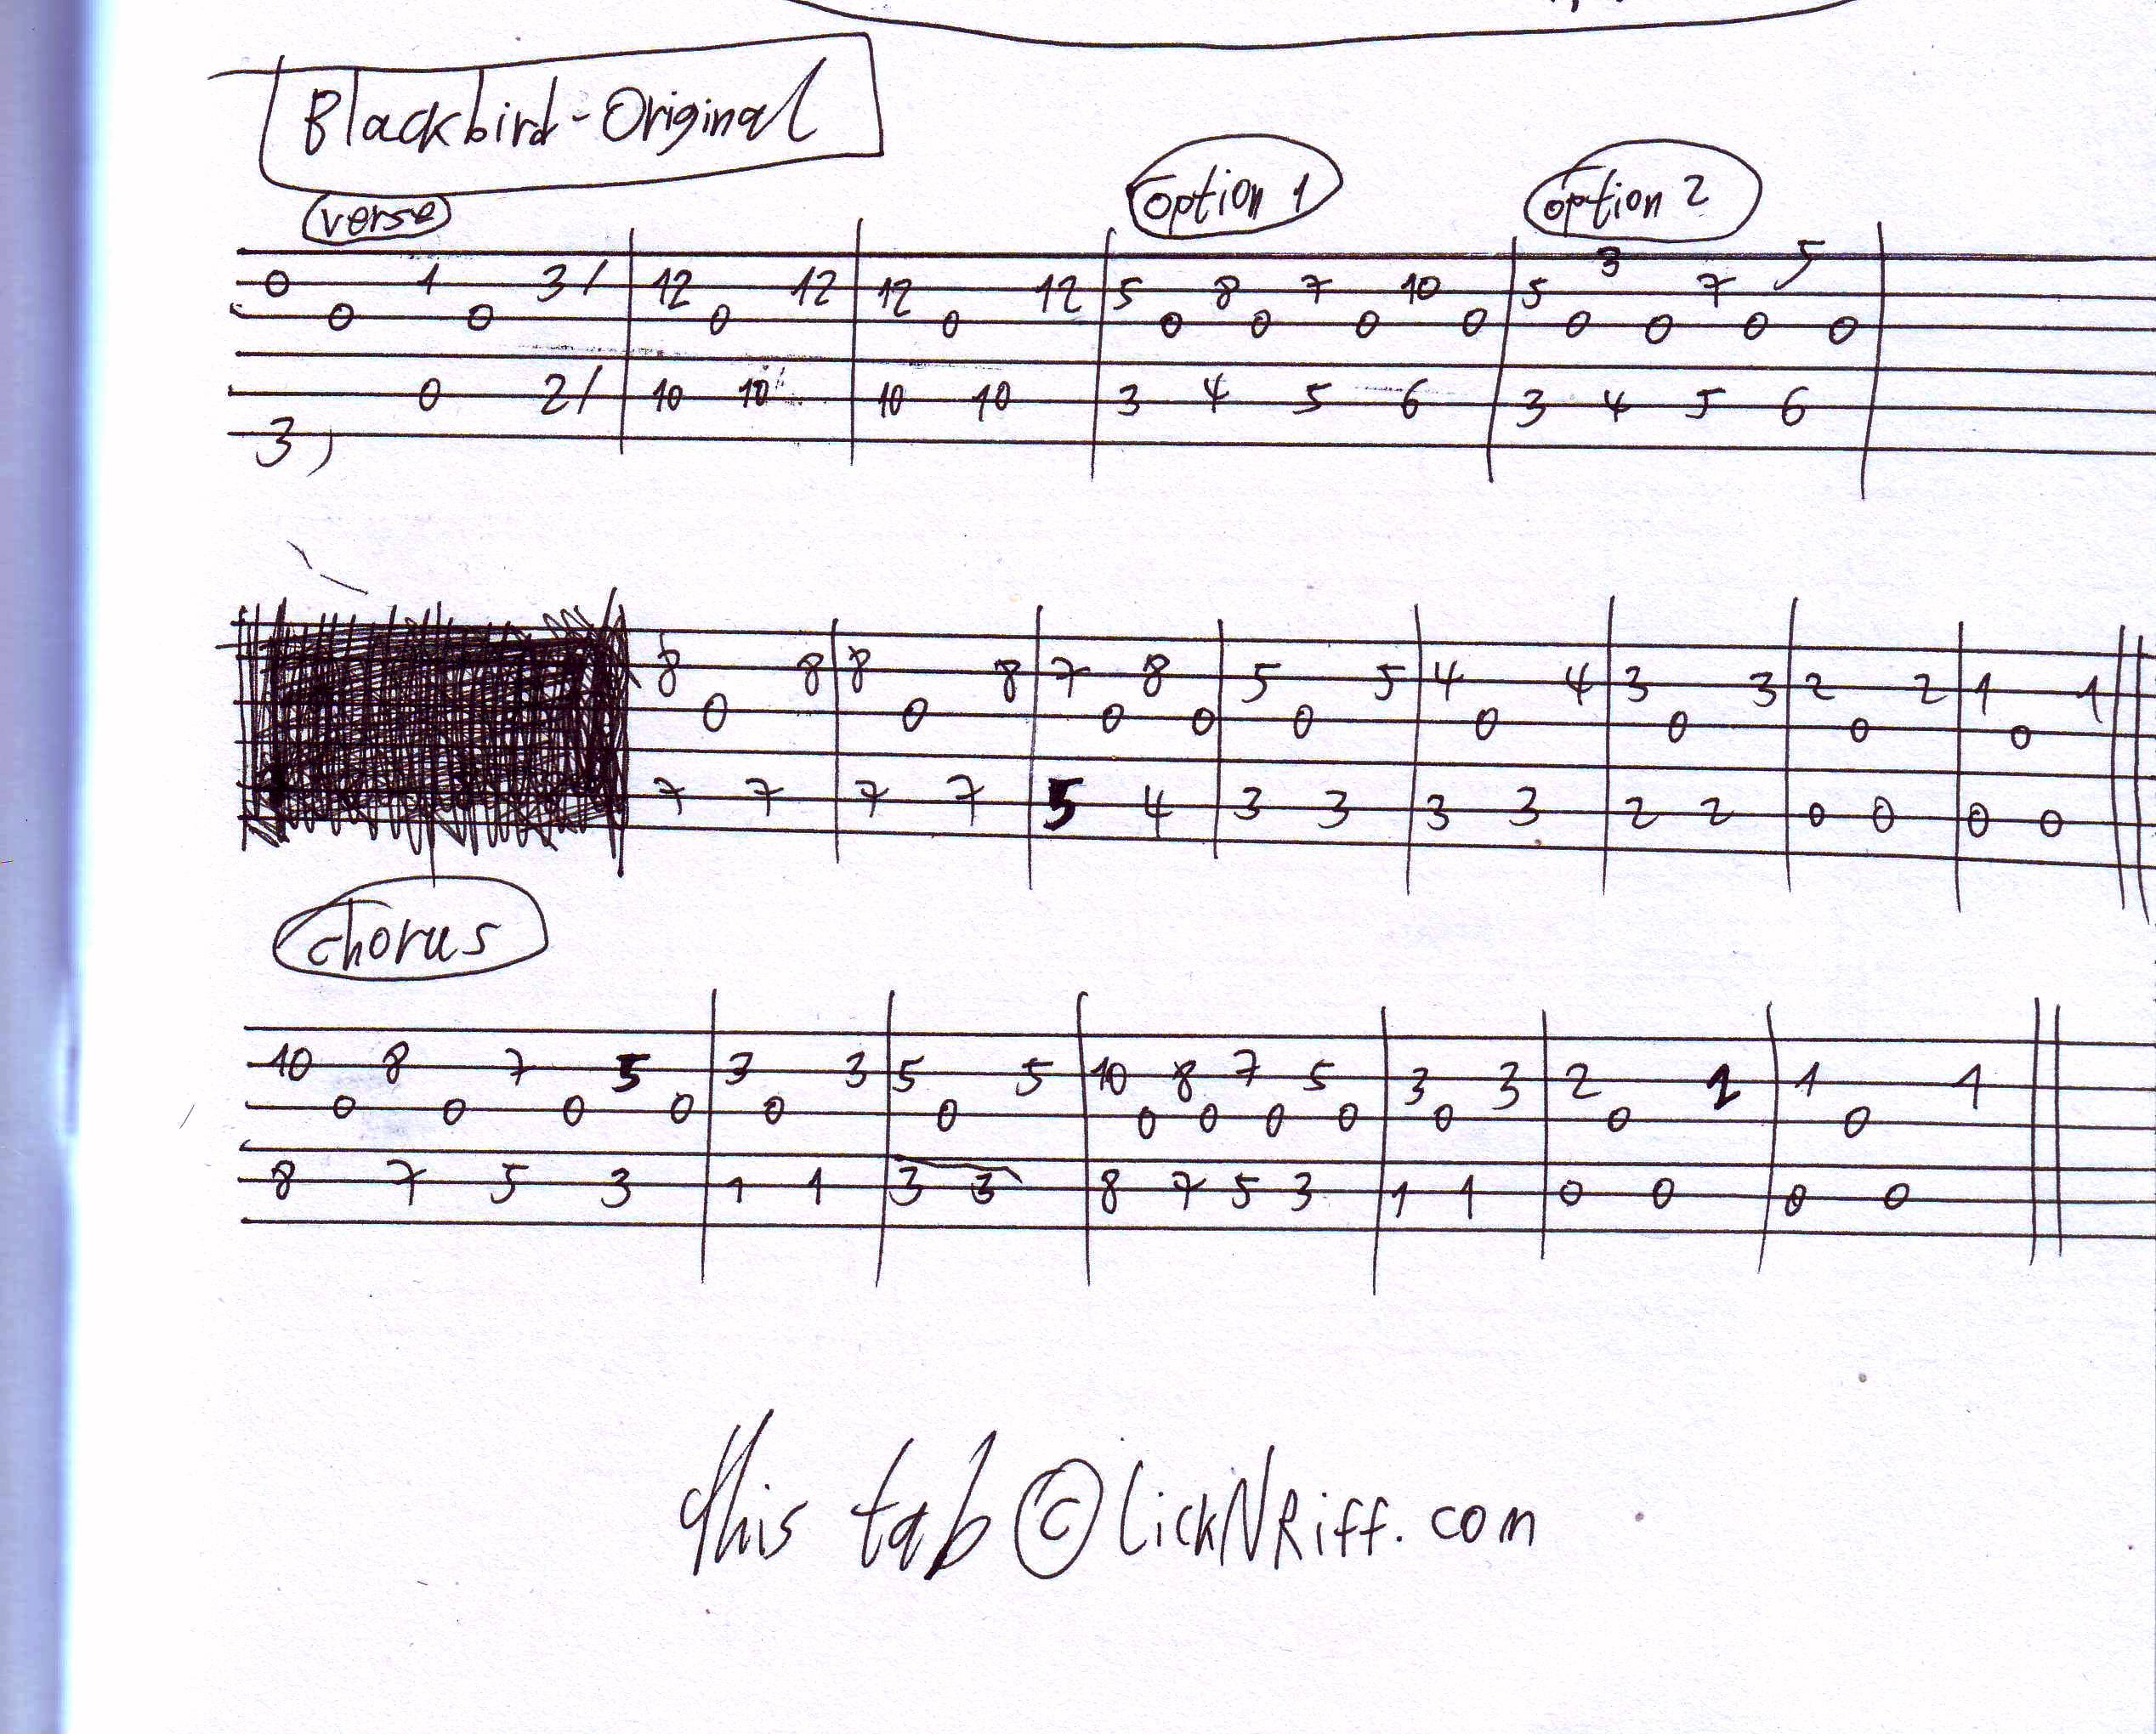 Blackbird-Original
verse
option 1
option 2
0 1 3/ 12 12 12 12 5 8 7 10 5 3 7 5
0 0 0 0 0 0 0 0 0 0 0 0
0 2/ 10 10 10 10 3 4 5 6 3 4 5 6
3)
8 8 8 8 7 8 5 5 4 4 3 3 2 2 1 1
0 0 0 0 0 0 0 0 0
7 7 7 7 5 4 3 3 3 3 2 2 0 0 0 0
chorus
10 8 7 5 3 3 5 5 10 8 7 5 3 3 2 2 1 1
0 0 0 0 0 0 0 0 0 0 0 0 0
8 7 5 3 1 1 3 3 8 7 5 3 1 1 0 0 0 0
this tab © LickNRiff.com